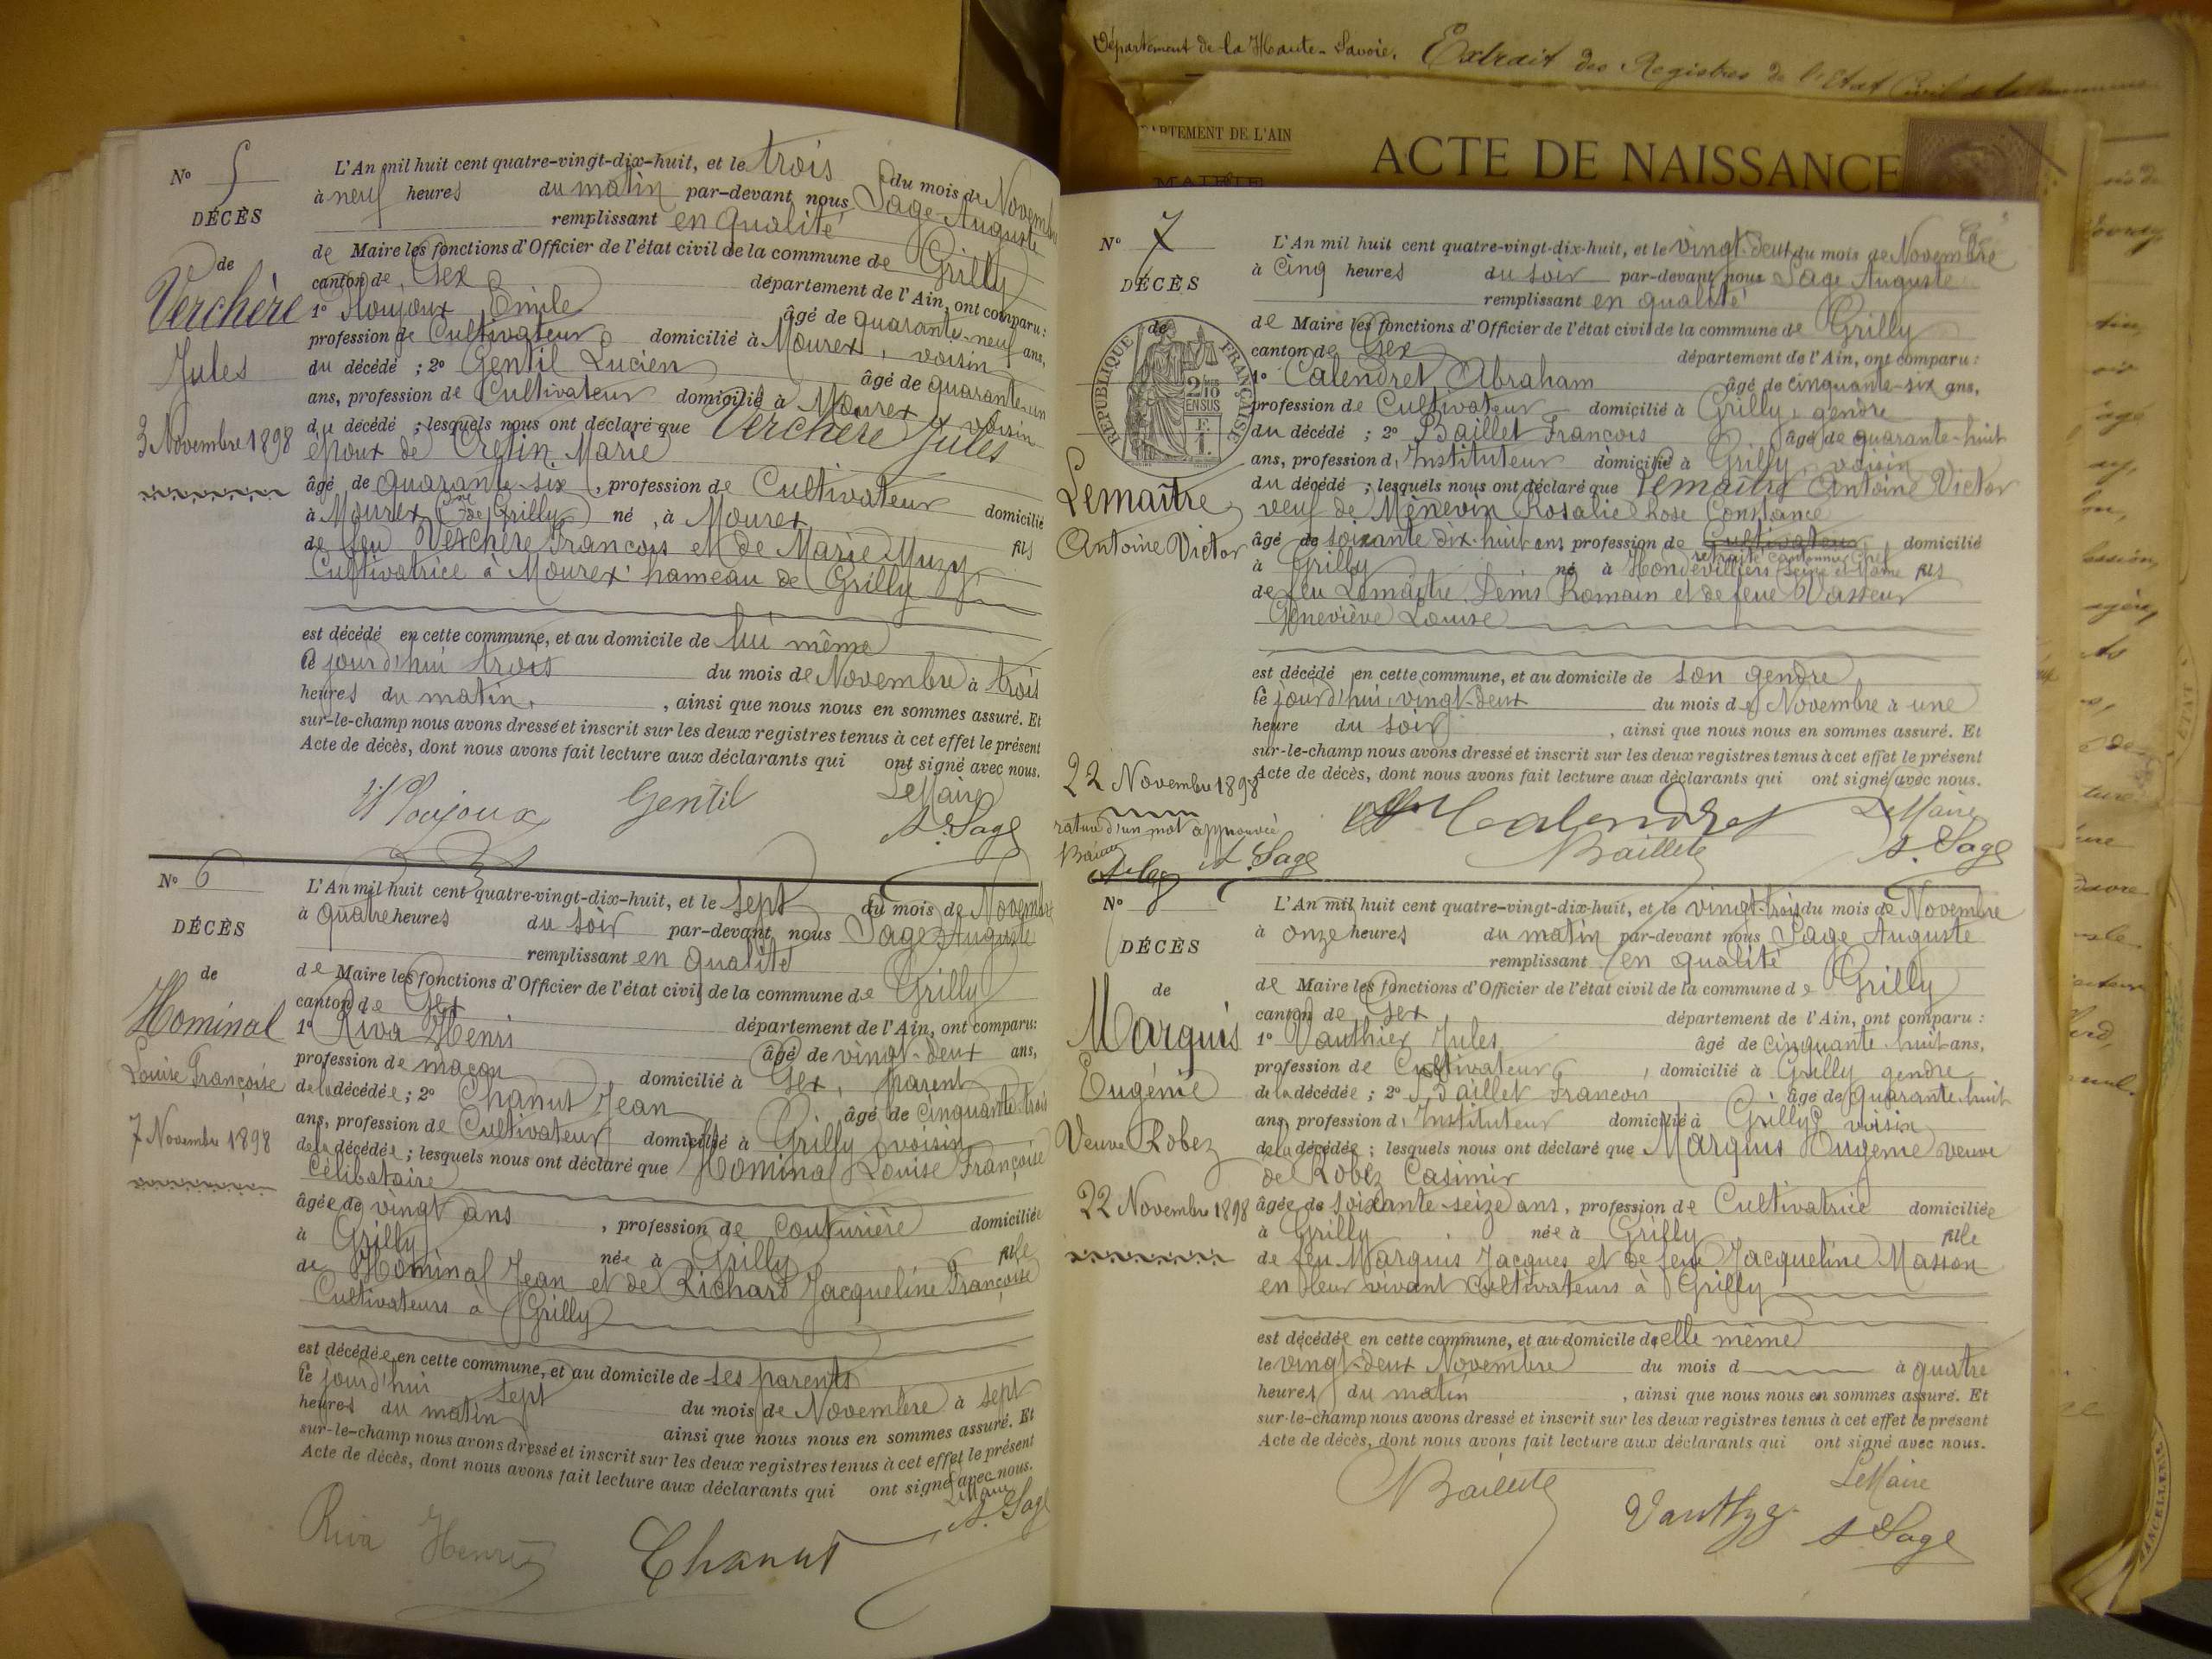 Département de la Haute-Savoie. Extrait des Registres de l'Etat Civil de la
DÉPARTEMENT DE L'AIN
MAIRIE
ACTE DE NAISSANCE
N° 5
DÉCÈS
de
Verchère
Jules
3 Novembre 1898
L'An mil huit cent quatre-vingt-dix-huit, et le trois du mois de Novembre
à neuf heures du matin par-devant nous Sage Auguste
remplissant en qualité
de Maire les fonctions d'Officier de l'état civil de la commune de Grilly
canton de Gex département de l'Ain, ont comparu :
1° Poujoux Emile âgé de quarante-neuf ans,
profession de Cultivateur domicilié à Mourex, voisin
du décédé ; 2° Gentil Lucien âgé de quarante-un
ans, profession de Cultivateur domicilié à Mourex, voisin
du décédé ; lesquels nous ont déclaré que Verchère Jules
époux de Cretin Marie
âgé de quarante-six, profession de Cultivateur domicilié
à Mourex (Cne de Grilly) né à Mourex fils
de feu Verchère François et de Marie Muzy,
Cultivatrice à Mourex hameau de Grilly
est décédé en cette commune, et au domicile de lui même
le jourd'hui trois du mois de Novembre à trois
heures du matin, ainsi que nous nous en sommes assuré. Et
sur-le-champ nous avons dressé et inscrit sur les deux registres tenus à cet effet le présent
Acte de décès, dont nous avons fait lecture aux déclarants qui ont signé avec nous.
Poujoux Gentil Le Maire
A. Sage
N° 6
DÉCÈS
de
Hominal
Louise Françoise
7 Novembre 1898
L'An mil huit cent quatre-vingt-dix-huit, et le sept du mois de Novembre
à quatre heures du soir par-devant nous Sage Auguste
remplissant en qualité
de Maire les fonctions d'Officier de l'état civil de la commune de Grilly
canton de Gex département de l'Ain, ont comparu:
1° Riva Henri âgé de vingt-deux ans,
profession de maçon domicilié à Gex, parent
de la décédée ; 2° Chanut Jean âgé de cinquante-trois
ans, profession de Cultivateur domicilié à Grilly, voisin
de la décédée ; lesquels nous ont déclaré que Hominal Louise Françoise
Célibataire
âgée de vingt ans, profession de couturière domiciliée
à Grilly née à Grilly fille
de Hominal Jean et de Richard Jacqueline Françoise
Cultivateurs à Grilly
est décédée en cette commune, et au domicile de ses parents
le jourd'hui sept du mois de Novembre à sept
heures du matin ainsi que nous nous en sommes assuré. Et
sur-le-champ nous avons dressé et inscrit sur les deux registres tenus à cet effet le présent
Acte de décès, dont nous avons fait lecture aux déclarants qui ont signé avec nous.
Riva Henri Chanut Le Maire
A. Sage
N° 7
DÉCÈS
de
RÉPUBLIQUE FRANÇAISE
Lemaître
Antoine Victor
22 Novembre 1898
rature d'un mot approuvée
A. Sage
L'An mil huit cent quatre-vingt-dix-huit, et le vingt-deux du mois de Novembre
à cinq heures du soir par-devant nous Sage Auguste
remplissant en qualité
de Maire les fonctions d'Officier de l'état civil de la commune de Grilly
canton de Gex département de l'Ain, ont comparu :
1° Calendret Abraham âgé de cinquante-six ans,
profession de Cultivateur domicilié à Grilly, gendre
du décédé ; 2° Baillet François âgé de quarante-huit
ans, profession d'Instituteur domicilié à Grilly, voisin
du décédé ; lesquels nous ont déclaré que Lemaître Antoine Victor
veuf de Ménevin Rosalie Rose Constance
âgé de soixante dix-huit ans profession de Cultivateur, domicilié
retraité Cantonnier Chef
à Grilly né à Hondevilliers Seine et Marne fils
de feu Lemaître Denis Romain et de feue Vasseur
Geneviève Louise
est décédé en cette commune, et au domicile de son gendre
le jourd'hui vingt-deux du mois de Novembre à une
heure du soir, ainsi que nous nous en sommes assuré. Et
sur-le-champ nous avons dressé et inscrit sur les deux registres tenus à cet effet le présent
Acte de décès, dont nous avons fait lecture aux déclarants qui ont signé avec nous.
Calendret Le Maire
Baillet A. Sage
N° 8
DÉCÈS
de
Marquis
Eugénie
Veuve Robez
22 Novembre 1898
L'An mil huit cent quatre-vingt-dix-huit, et le vingt-trois du mois de Novembre
à onze heures du matin par-devant nous Sage Auguste
remplissant en qualité
de Maire les fonctions d'Officier de l'état civil de la commune de Grilly
canton de Gex département de l'Ain, ont comparu :
1° Vauthier Jules âgé de cinquante huit ans,
profession de Cultivateur, domicilié à Grilly gendre
de la décédée ; 2° Baillet François âgé de quarante-huit
ans, profession d'Instituteur domicilié à Grilly, voisin
de la décédée ; lesquels nous ont déclaré que Marquis Eugénie veuve
de Robez Casimir
âgée de soixante-seize ans, profession de Cultivatrice domiciliée
à Grilly née à Grilly fille
de feu Marquis Jacques et de feue Jacqueline Masson
en leur vivant Cultivateurs à Grilly
est décédée en cette commune, et au domicile d'elle même
le vingt-deux Novembre du mois d à quatre
heures du matin, ainsi que nous nous en sommes assuré. Et
sur-le-champ nous avons dressé et inscrit sur les deux registres tenus à cet effet le présent
Acte de décès, dont nous avons fait lecture aux déclarants qui ont signé avec nous.
Baillet Le Maire
A. Sage